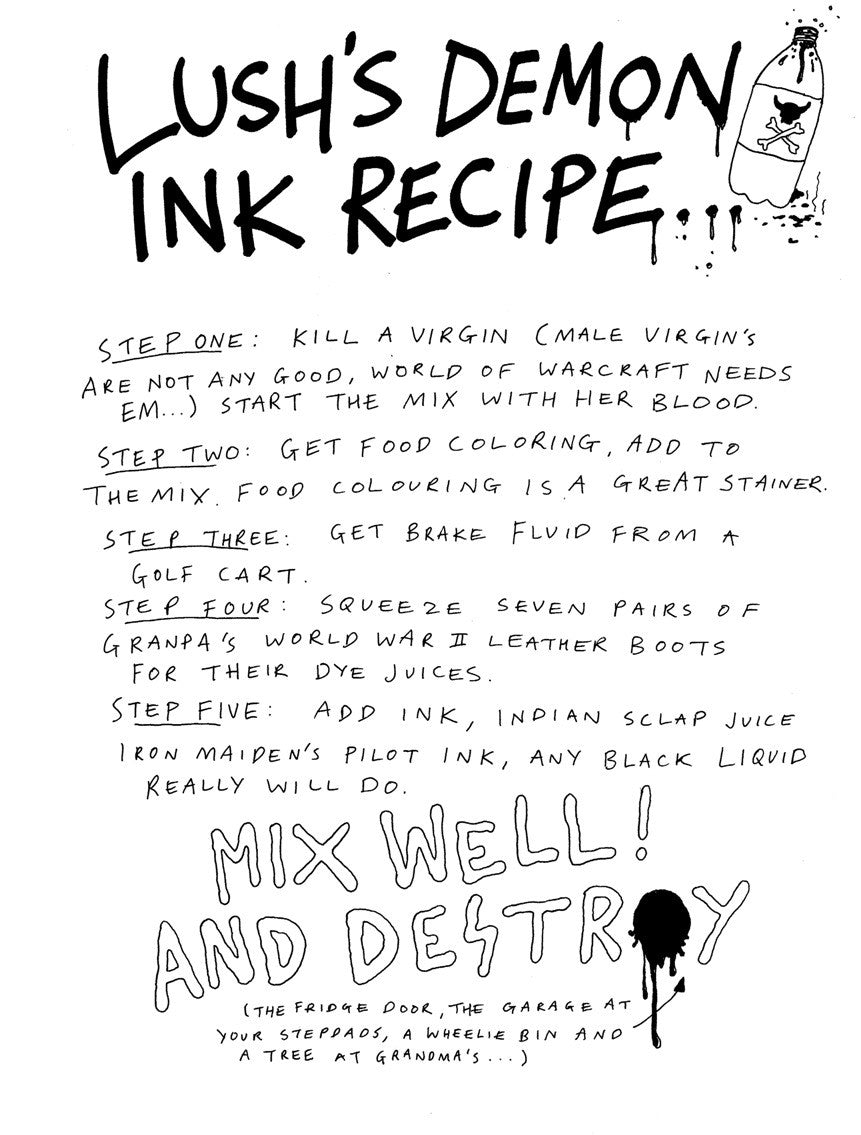 LUSH'S DEMON
INK RECIPE...
STEP ONE: KILL A VIRGIN (MALE VIRGIN'S
ARE NOT ANY GOOD, WORLD OF WARCRAFT NEEDS
EM...) START THE MIX WITH HER BLOOD.
STEP TWO: GET FOOD COLORING, ADD TO
THE MIX. FOOD COLOURING IS A GREAT STAINER.
STEP THREE: GET BRAKE FLUID FROM A
GOLF CART.
STEP FOUR: SQUEEZE SEVEN PAIRS OF
GRANPA'S WORLD WAR II LEATHER BOOTS
FOR THEIR DYE JUICES.
STEP FIVE: ADD INK, INDIAN SCLAP JUICE
IRON MAIDEN'S PILOT INK, ANY BLACK LIQUID
REALLY WILL DO.
MIX WELL!
AND DESTROY
(THE FRIDGE DOOR, THE GARAGE AT
YOUR STEPDADS, A WHEELIE BIN AND
A TREE AT GRANDMA'S...)